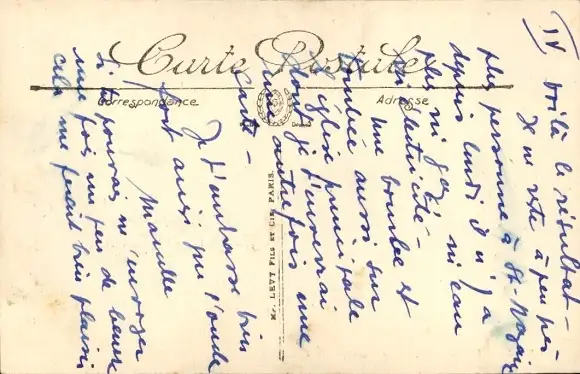 Carte Postale
Correspondance
Adresse
Mr. LEVY FILS ET CIE, PARIS.
IV Voilà le résultat –
Il ne reste à peu près
plus personne à St-Nazaire
depuis lundi il n'y a
plus ni gaz, ni eau
ni électricité –
une bombe est
tombée aussi sur
l'église principale
dont je t'enverrai
une autre fois une
carte –
Je t'embrasse bien
fort ainsi que l'oncle
Marcelle
Si tu pouvais m'envoyer
une fois un peu de beurre
cela me ferait bien plaisir